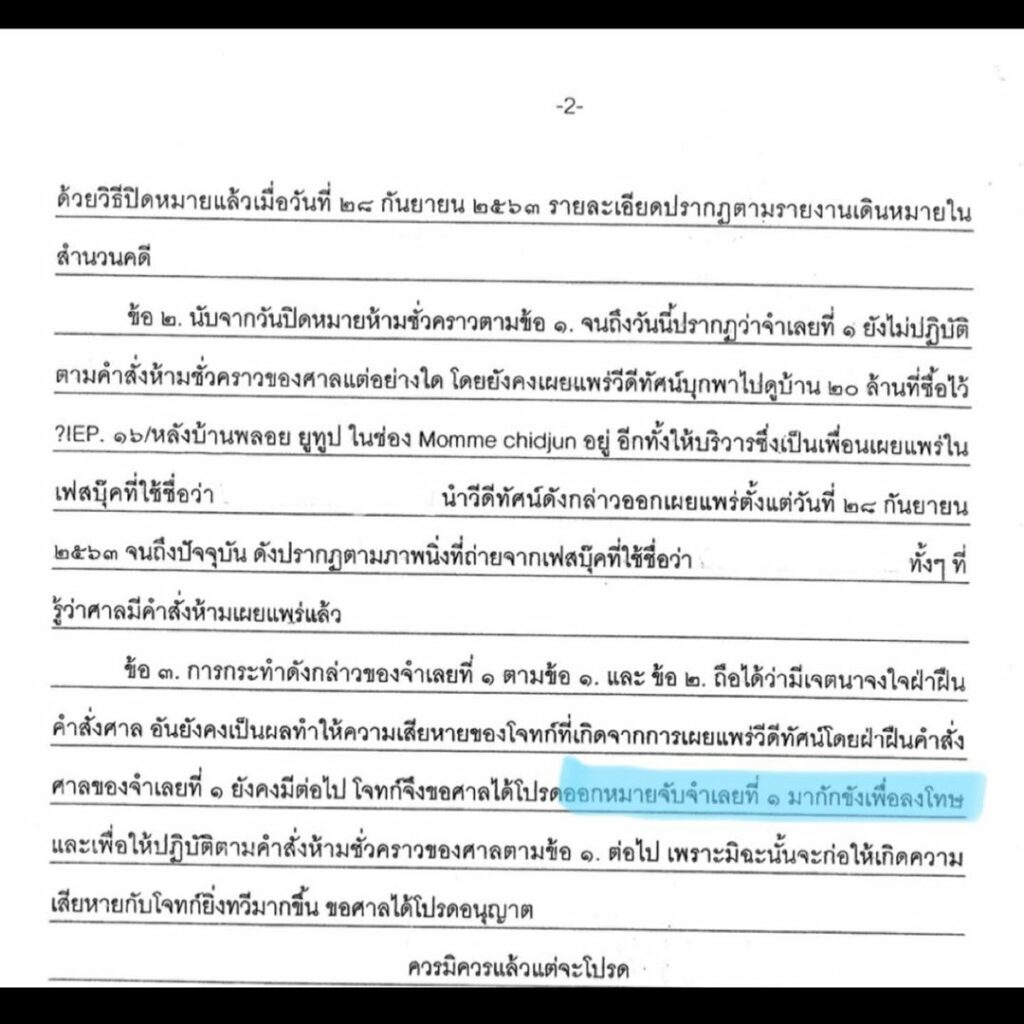 -2-
ด้วยวิธีปิดหมายแล้วเมื่อวันที่ ๒๘ กันยายน ๒๕๖๓ รายละเอียดปรากฏตามรายงานเดินหมายใน
สำนวนคดี
ข้อ ๒. นับจากวันปิดหมายห้ามชั่วคราวตามข้อ ๑. จนถึงวันนี้ปรากฏว่าจำเลยที่ ๑ ยังไม่ปฏิบัติ
ตามคำสั่งห้ามชั่วคราวของศาลแต่อย่างใด โดยยังคงเผยแพร่วีดีทัศน์บุกพาไปดูบ้าน ๒๐ ล้านที่ซื้อไว้
?IEP. ๑๖/หลังบ้านพลอย ยูทูป ในช่อง Momme chidjun อยู่ อีกทั้งให้บริวารซึ่งเป็นเพื่อนเผยแพร่ใน
เฟสบุ๊คที่ใช้ชื่อว่า นำวีดีทัศน์ดังกล่าวออกเผยแพร่ตั้งแต่วันที่ ๒๘ กันยายน
๒๕๖๓ จนถึงปัจจุบัน ดังปรากฏตามภาพนิ่งที่ถ่ายจากเฟสบุ๊คที่ใช้ชื่อว่า ทั้งๆ ที่
รู้ว่าศาลมีคำสั่งห้ามเผยแพร่แล้ว
ข้อ ๓. การกระทำดังกล่าวของจำเลยที่ ๑ ตามข้อ ๑. และ ข้อ ๒. ถือได้ว่ามีเจตนาจงใจฝ่าฝืน
คำสั่งศาล อันยังคงเป็นผลทำให้ความเสียหายของโจทก์ที่เกิดจากการเผยแพร่วีดีทัศน์โดยฝ่าฝืนคำสั่ง
ศาลของจำเลยที่ ๑ ยังคงมีต่อไป โจทก์จึงขอศาลได้โปรดออกหมายจับจำเลยที่ ๑ มากักขังเพื่อลงโทษ
และเพื่อให้ปฏิบัติตามคำสั่งห้ามชั่วคราวของศาลตามข้อ ๑. ต่อไป เพราะมิฉะนั้นจะก่อให้เกิดความ
เสียหายกับโจทก์ยิ่งทวีมากขึ้น ขอศาลได้โปรดอนุญาต
ควรมิควรแล้วแต่จะโปรด